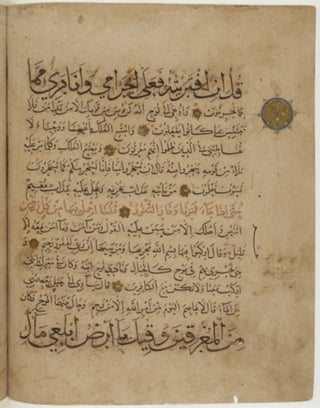 قُلْ إِنِ افْتَرَيْتُهُ فَعَلَيَّ إِجْرَامِي وَأَنَا بَرِيءٌ مِمَّا
تُجْرِمُونَ وَأُوحِيَ إِلَى نُوحٍ أَنَّهُ لَنْ يُؤْمِنَ مِنْ قَوْمِكَ إِلَّا مَنْ قَدْ آمَنَ فَلَا
تَبْتَئِسْ بِمَا كَانُوا يَفْعَلُونَ وَاصْنَعِ الْفُلْكَ بِأَعْيُنِنَا وَوَحْيِنَا وَلَا
تُخَاطِبْنِي فِي الَّذِينَ ظَلَمُوا إِنَّهُمْ مُغْرَقُونَ وَيَصْنَعُ الْفُلْكَ وَكُلَّمَا مَرَّ عَلَيْهِ
مَلَأٌ مِنْ قَوْمِهِ سَخِرُوا مِنْهُ قَالَ إِنْ تَسْخَرُوا مِنَّا فَإِنَّا نَسْخَرُ مِنْكُمْ كَمَا تَسْخَرُونَ
فَسَوْفَ تَعْلَمُونَ مَنْ يَأْتِيهِ عَذَابٌ يُخْزِيهِ وَيَحِلُّ عَلَيْهِ عَذَابٌ مُقِيمٌ
حَتَّى إِذَا جَاءَ أَمْرُنَا وَفَارَ التَّنُّورُ قُلْنَا احْمِلْ فِيهَا مِنْ كُلٍّ زَوْجَيْنِ
اثْنَيْنِ وَأَهْلَكَ إِلَّا مَنْ سَبَقَ عَلَيْهِ الْقَوْلُ وَمَنْ آمَنَ وَمَا آمَنَ مَعَهُ إِلَّا
قَلِيلٌ وَقَالَ ارْكَبُوا فِيهَا بِسْمِ اللَّهِ مَجْرِيهَا وَمُرْسَيهَا إِنَّ رَبِّي لَغَفُورٌ رَحِيمٌ وَ
هِيَ تَجْرِي بِهِمْ فِي مَوْجٍ كَالْجِبَالِ وَنَادَى نُوحٌ ابْنَهُ وَكَانَ فِي مَعْزِلٍ يَا بُنَيَّ
ارْكَبْ مَعَنَا وَلَا تَكُنْ مَعَ الْكَافِرِينَ قَالَ سَآوِي إِلَى جَبَلٍ يَعْصِمُنِي
مِنَ الْمَاءِ قَالَ لَا عَاصِمَ الْيَوْمَ مِنْ أَمْرِ اللَّهِ إِلَّا مَنْ رَحِمَ وَحَالَ بَيْنَهُمَا الْمَوْجُ فَكَانَ
مِنَ الْمُغْرَقِينَ وَقِيلَ يَا أَرْضُ ابْلَعِي مَاءَكِ